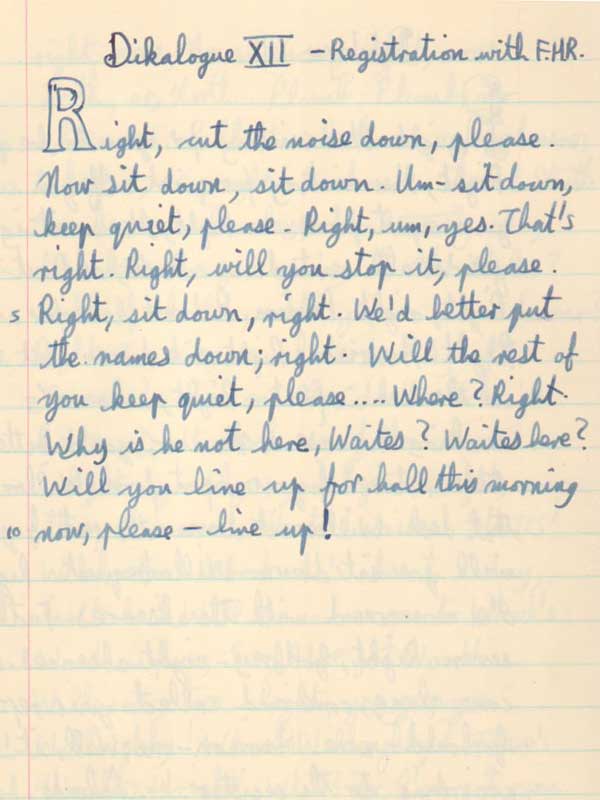 Dikalogue XII - Registration with F.H.R.
Right, cut the noise down, please.
Now sit down, sit down. Um- sit down,
keep quiet, please. Right, um, yes. That's
right. Right, will you stop it, please.
5 Right, sit down, right. We'd better put
the names down; right. Will the rest of
you keep quiet, please.... Where? Right.
Why is he not here, Waites? Waites here?
Will you line up for hall this morning
10 now, please - line up!